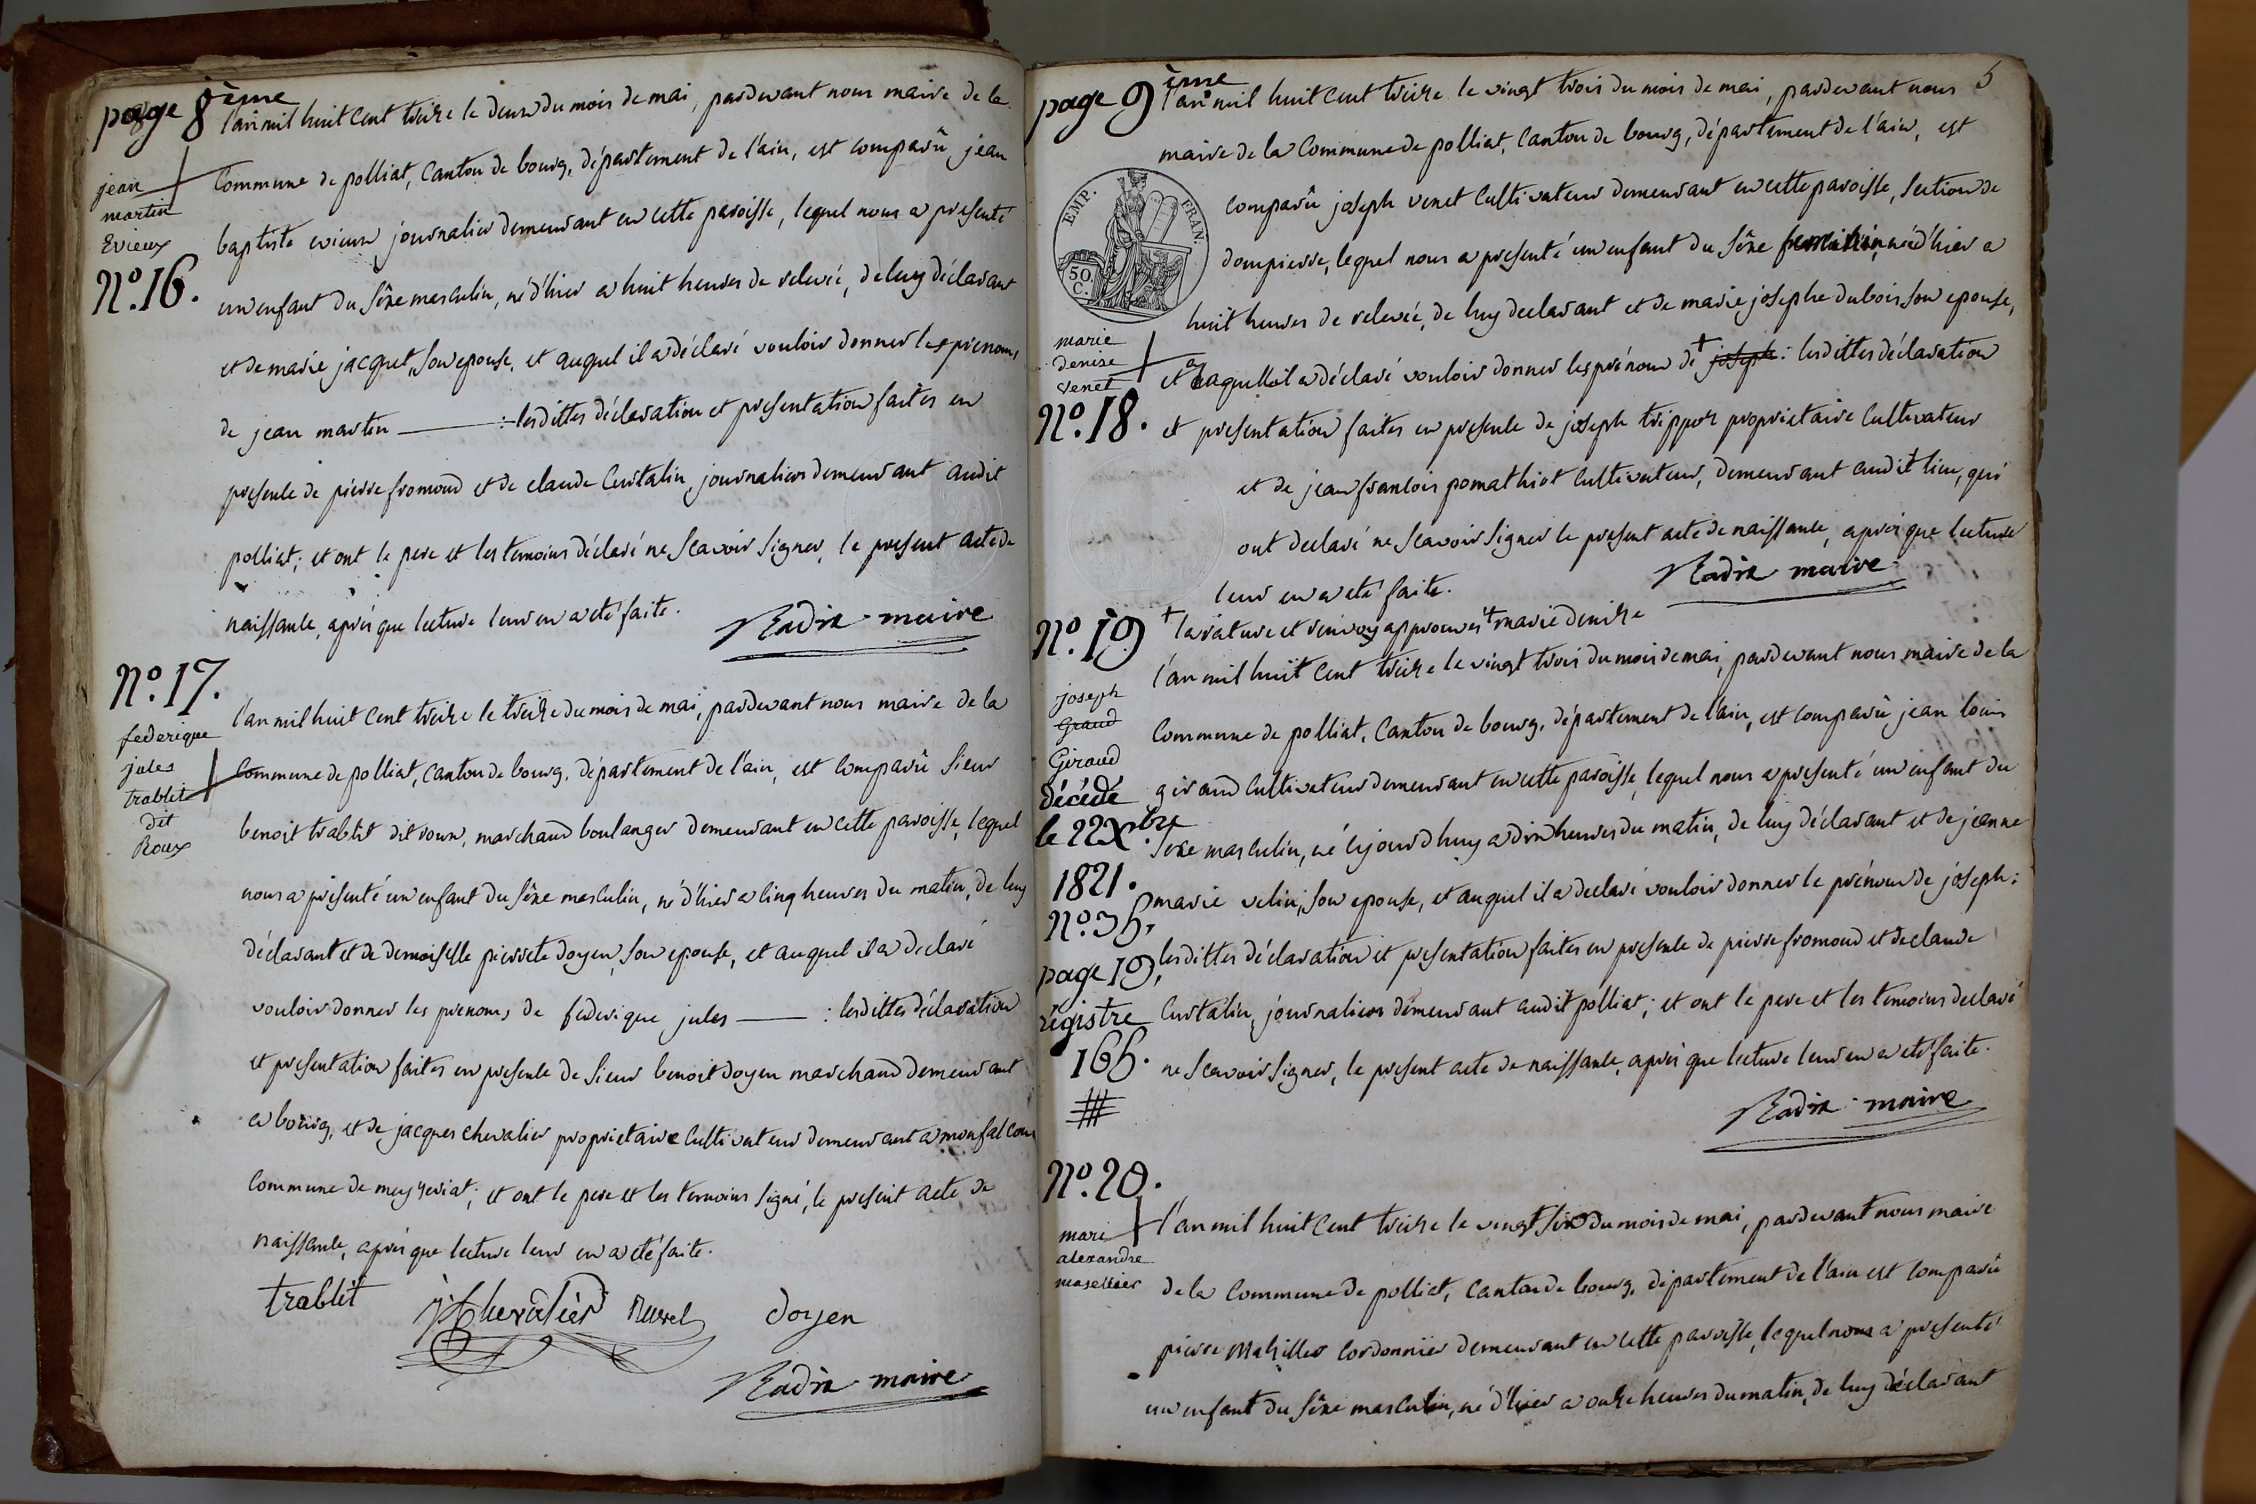 page 8ème
l'an mil huit cent treize le deux du mois de mai, pardevant nous maire de la
jean
martin
Evieux
N°. 16.
Commune de polliat, canton de bourg, département de l'ain, est comparû jean
baptiste evieux journalier demeurant en cette paroisse, lequel nous a presenté
un enfant du sêxe masculin, né d'hier a huit heures de relevée, de luy déclarant
et de marie jacquet, son epouse, et auquel il a déclaré vouloir donner les prenoms
de jean martin : lesdittes déclaration et presentation faites en
presence de pierre fromond et de claude Curtalin, journaliers demeurant audit
polliat; et ont le pere et les temoins déclaré ne scavoir signer, le present acte de
naissance, après que lecture leur en a eté faite.
Nadin maire
N°. 17.
federique
jules
trablit
dit
Roux
l'an mil huit cent treize le treize du mois de mai, pardevant nous maire de la
Commune de polliat, canton de bourg, département de l'ain, est comparû sieur
benoit trablit dit roux, marchand boulanger demeurant en cette paroisse, lequel
nous a présenté un enfant du sêxe masculin, né d'hier a cinq heures du matin, de luy
déclarant et de demoiselle pierrete doyen, son epouse, et auquel il a declaré
vouloir donner les prenoms de federique jules : lesdittes déclaration
et presentation faites en presence de sieur benoit doyen marchand demeurant
a bourg, et de jacques chevalier proprietaire cultivateur demeurant a monfalcon
commune de meyzeriat; et ont le pere et les temoins signé, le present acte de
naissance, après que lecture leur en a eté faite.
trablit J Chevalier doyen
Nadin maire
page 9ème
5
l'an mil huit cent treize le vingt trois du mois de mai, pardevant nous
maire de la Commune de polliat, canton de bourg, département de l'ain, est
EMP. FRAN.
50
C.
comparû joseph venet cultivateur demeurant en cette paroisse, section de
dompierre, lequel nous a presenté un enfant du sêxe feminin, né d'hier a
huit heures de relevée, de luy declarant et de marie josephe dubois son epouse,
marie
denise
venet
N°. 18.
et a laquelle il a déclaré vouloir donner les prénom de + joseph : lesdittes déclaration
et presentation faites en presence de joseph trippoz proprietaire cultivateur
et de jean francois pomathiot cultivateur, demeurant audit lieu, qui
ont declaré ne scavoir signer le present acte de naissance, après que lecture
leur en a eté faite.
Nadin maire
+ la rature et renvoy approuvés + marie denise
N°. 19
joseph
Graud
Giraud
décédé
le 22 Xbre
1821.
N°. 35,
page 19,
registre
165.
l'an mil huit cent treize le vingt trois du mois de mai, pardevant nous maire de la
Commune de polliat, canton de bourg, département de l'ain, est comparû jean louis
giraud cultivateur demeurant en cette paroisse, lequel nous a presenté un enfant du
sexe masculin, né cejourd'huy a dix heures du matin, de luy déclarant et de jeanne
marie velin, son epouse, et auquel il a declaré vouloir donner le prénom de joseph;
lesdittes déclaration et presentation faites en presence de pierre fromond et de claude
Curtalin, journaliers demeurant audit polliat; et ont le pere et les temoins declaré
ne scavoir signer, le present acte de naissance, après que lecture leur en a eté faite.
Nadin maire
N°. 20.
mari
alexandre
l'an mil huit cent treize le vingt six du mois de mai, pardevant nous maire
de la Commune de polliat, canton de bourg, département de l'ain est comparû
pierre cordonnier demeurant en cette paroisse, lequel nous a presenté
un enfant du sêxe masculin, né d'hier a onze heures du matin, de luy déclarant